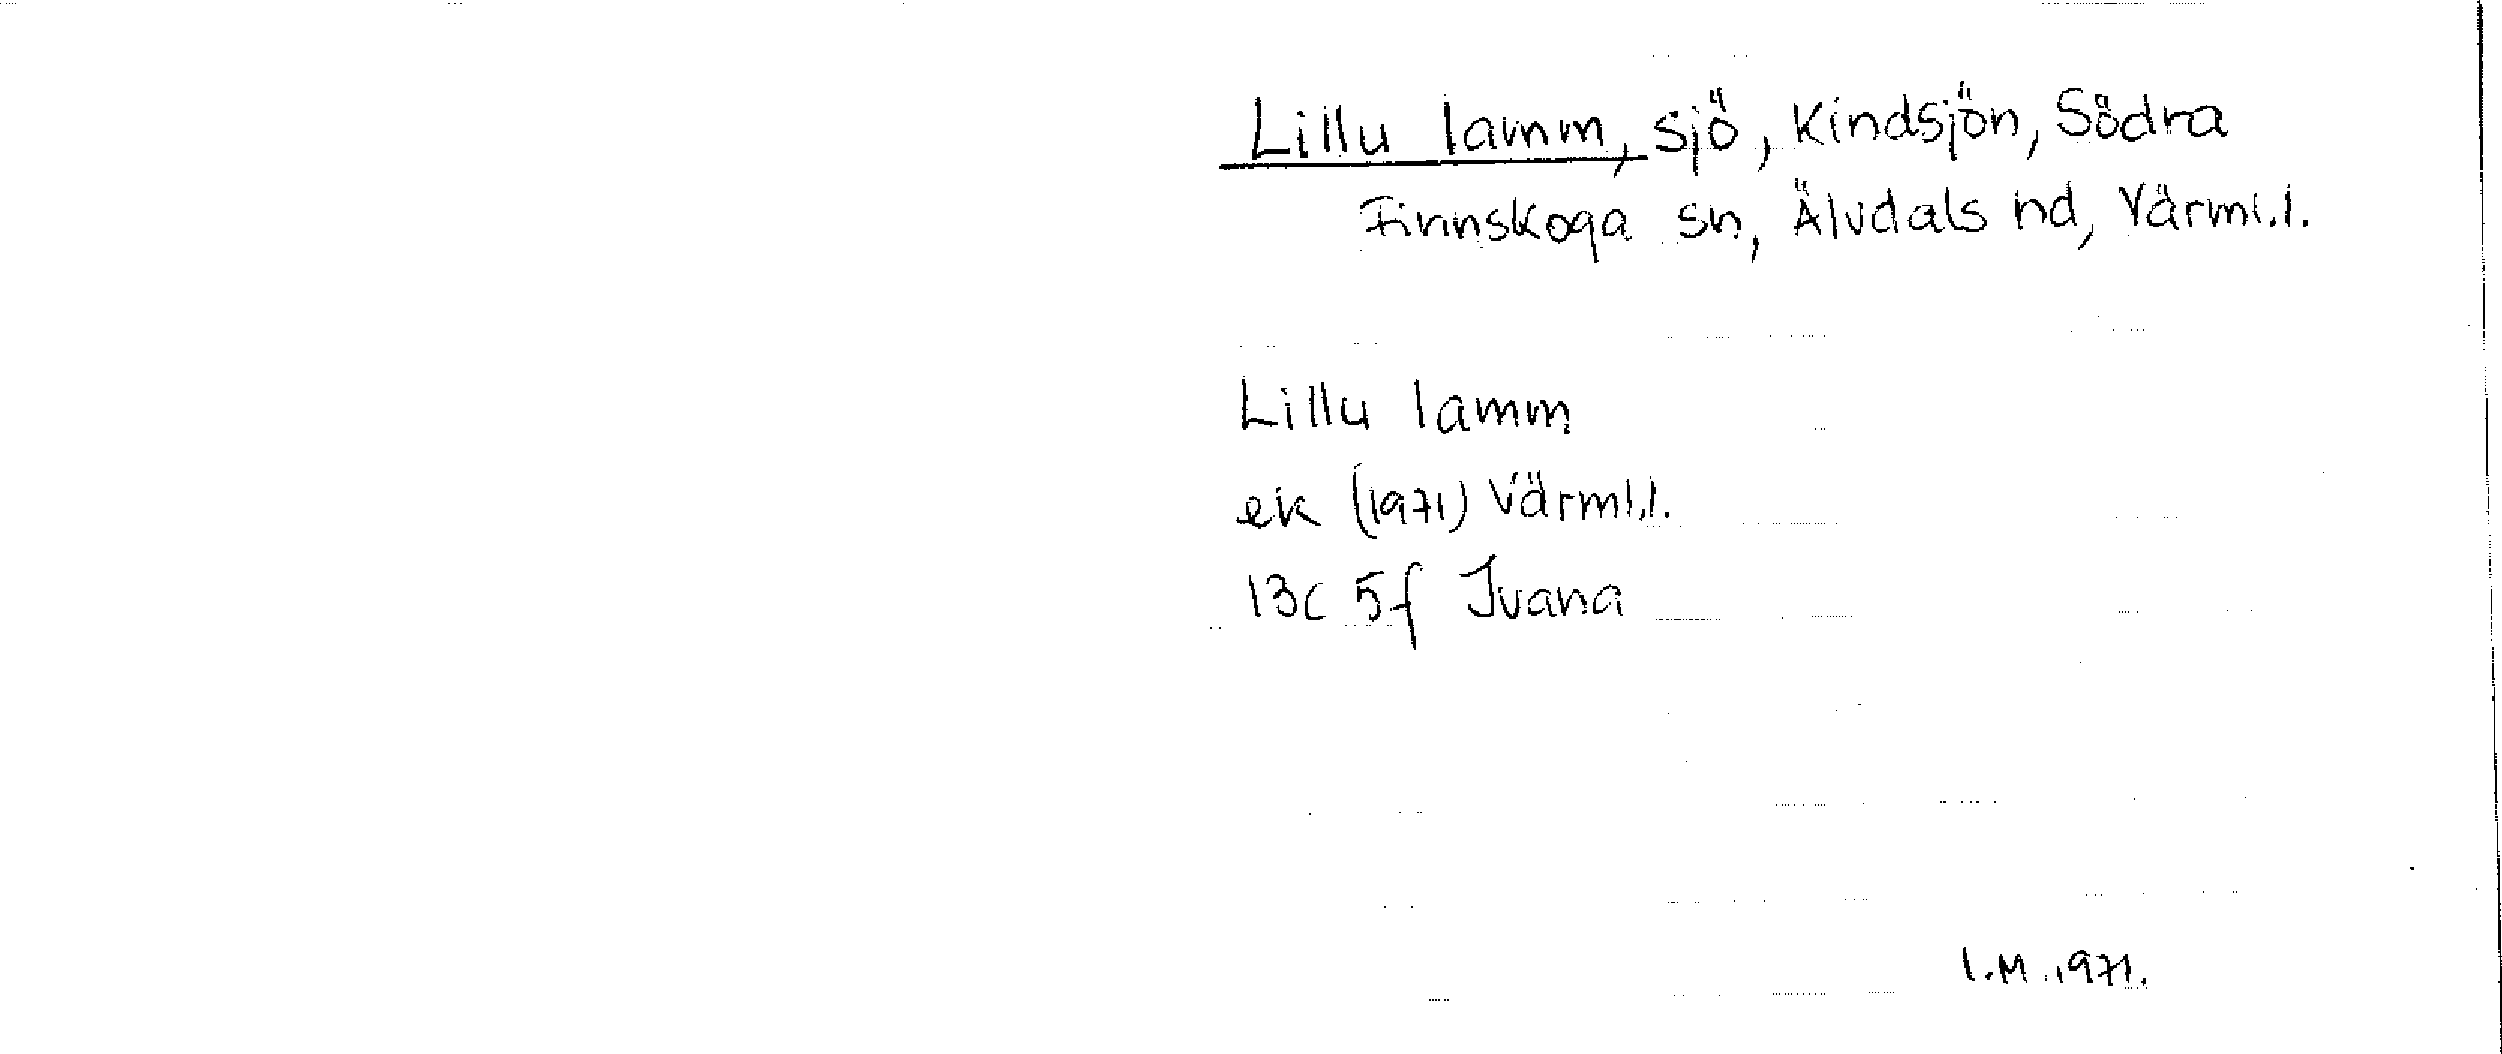 Lillu lamm, sjö, Kindsjön, Södra
Finnskoga sn, Älvdals hd, Värml.l.
Lillu lamm
ek (1971) Värml.l.
13c 5f Ivana
I.M. 1971.